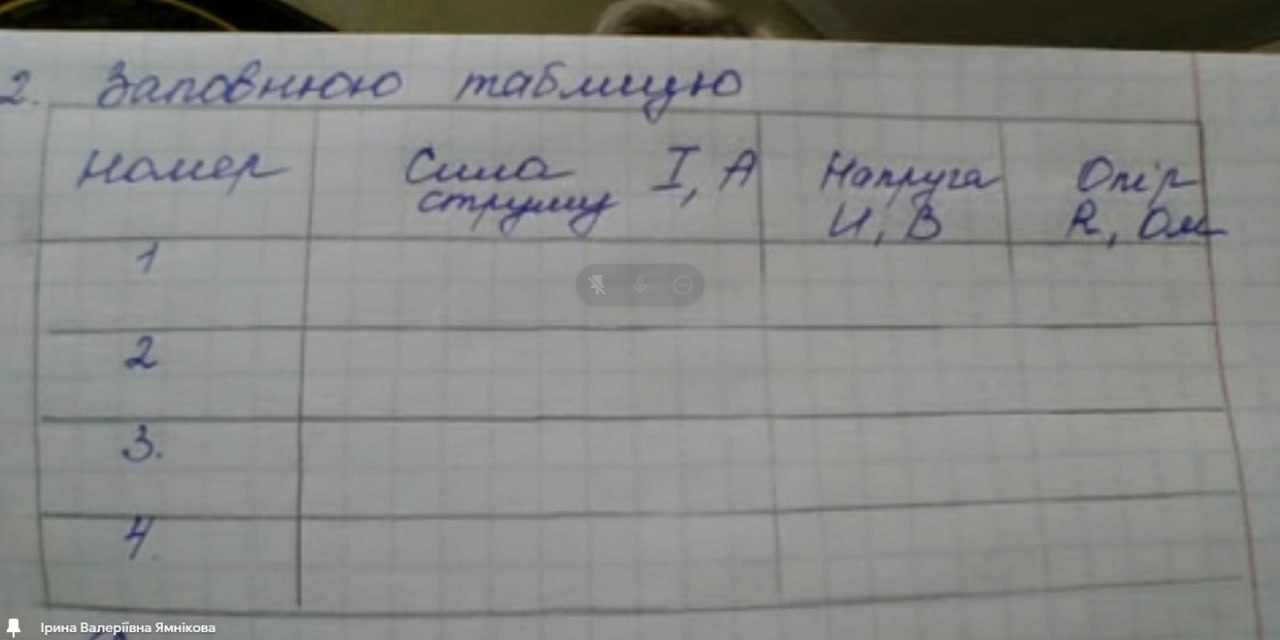 2. Заповнюю таблицю
Номер
Сила струму I, А
Напруга U, В
Опір R, Ом
1
2
3.
4.
Ірина Валеріївна Ямнікова